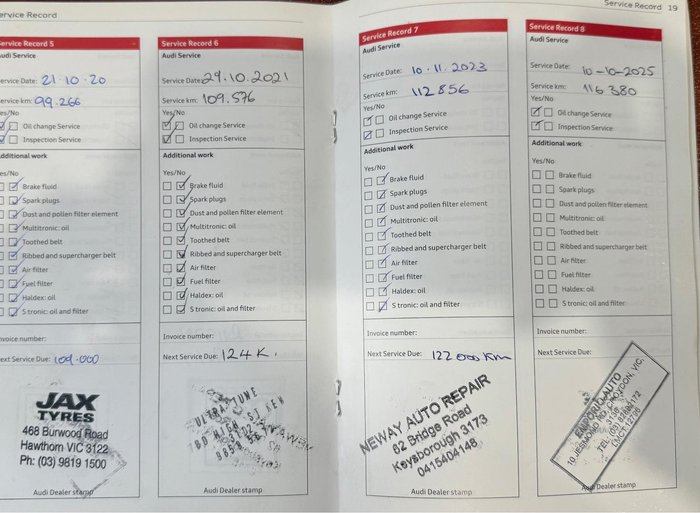 Service Record
Service Record 19
Service Record 5
Audi Service
Service Date: 21.10.20
Service km: 99.266
Yes/No
Oil change Service
Inspection Service
Additional work
Yes/No
Brake fluid
Spark plugs
Dust and pollen filter element
Multitronic: oil
Toothed belt
Ribbed and supercharger belt
Air filter
Fuel filter
Haldex: oil
S tronic: oil and filter
Invoice number:
Next Service Due: 109.000
JAX
TYRES
468 Burwood Road
Hawthorn VIC 3122
Ph: (03) 9819 1500
Audi Dealer stamp
Service Record 6
Audi Service
Service Date: 29.10.2021
Service km: 109.576
Yes/No
Oil change Service
Inspection Service
Additional work
Yes/No
Brake fluid
Spark plugs
Dust and pollen filter element
Multitronic: oil
Toothed belt
Ribbed and supercharger belt
Air filter
Fuel filter
Haldex: oil
S tronic: oil and filter
Invoice number:
Next Service Due: 124K.
ULTRA TUNE
HIGH ST KEW
Audi Dealer stamp
Service Record 7
Audi Service
Service Date: 10.11.2023
Service km: 112856
Yes/No
Oil change Service
Inspection Service
Additional work
Yes/No
Brake fluid
Spark plugs
Dust and pollen filter element
Multitronic: oil
Toothed belt
Ribbed and supercharger belt
Air filter
Fuel filter
Haldex: oil
S tronic: oil and filter
Invoice number:
Next Service Due: 122 000 Km
NEWAY AUTO REPAIR
82 Bridge Road
Keysborough 3173
0415404148
Audi Dealer stamp
Service Record 8
Audi Service
Service Date: 10-10-2025
Service km: 116380
Yes/No
Oil change Service
Inspection Service
Additional work
Yes/No
Brake fluid
Spark plugs
Dust and pollen filter element
Multitronic: oil
Toothed belt
Ribbed and supercharger belt
Air filter
Fuel filter
Haldex: oil
S tronic: oil and filter
Invoice number:
Next Service Due:
AUTO
CROYDON, VIC,
Audi Dealer stamp